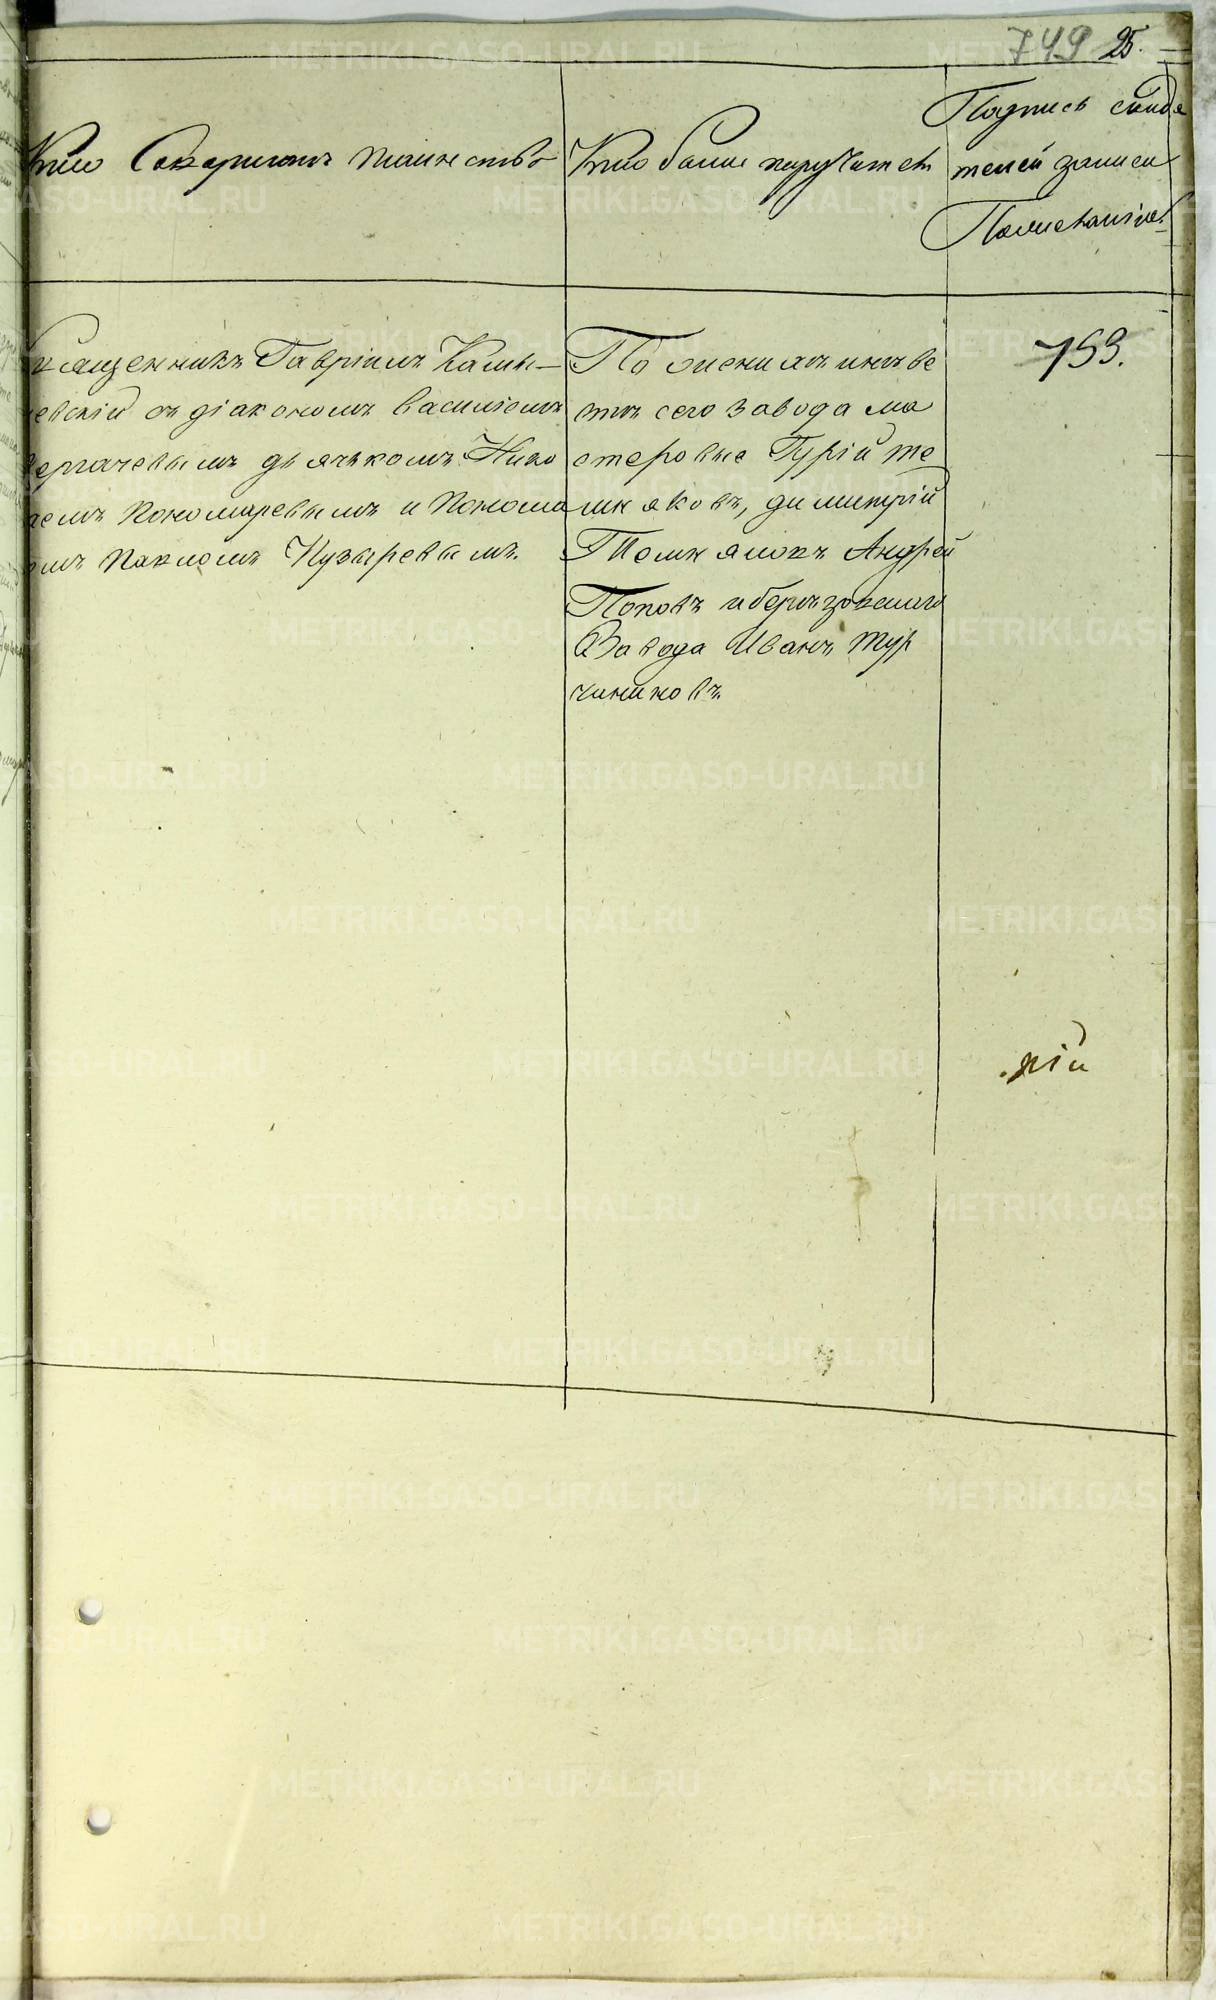 749 25.
Кто Совершалъ таинство
Кто были поручител
Подпись свидѣ
телей записи
По желанію.
Священникъ Гавріилъ Камы-
шевскій съ діакономъ Василіемъ
дьячькомъ Нико
лаемъ Пономаревымъ и Понома
ремъ Павломъ Пузыревымъ.
По женихѣ и невѣ
стѣ сего завода ма
стеровые Гурій те
мняковъ, димитрій
Темняковъ Андрей
Поповъ и березовскаго
Завода Иванъ Тур
чениновъ.
753.
.рій